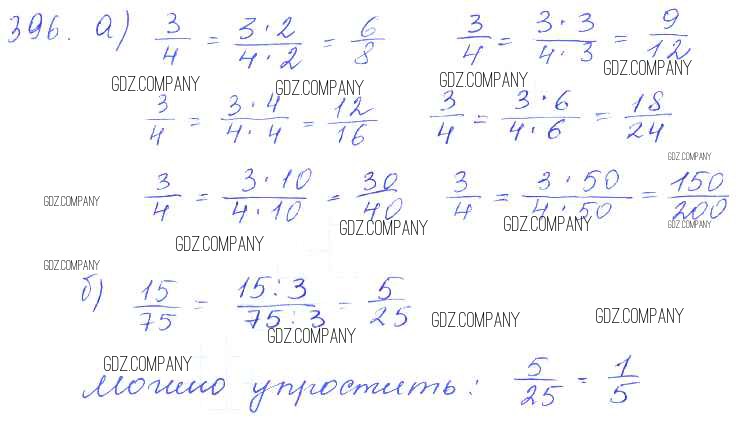 396. а) 3/4 = 3·2/4·2 = 6/8 3/4 = 3·3/4·3 = 9/12
GDZ.COMPANY GDZ.COMPANY GDZ.COMPANY GDZ.COMPANY
3/4 = 3·4/4·4 = 12/16 3/4 = 3·6/4·6 = 18/24
GDZ.COMPANY
3/4 = 3·10/4·10 = 30/40 3/4 = 3·50/4·50 = 150/200
GDZ.COMPANY GDZ.COMPANY GDZ.COMPANY GDZ.COMPANY GDZ.COMPANY
GDZ.COMPANY
б) 15/75 = 15:3/75:3 = 5/25
GDZ.COMPANY GDZ.COMPANY GDZ.COMPANY
GDZ.COMPANY
Можно упростить: 5/25 = 1/5